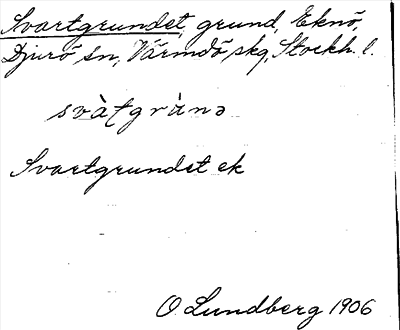 Svartgrundet, grund, Eknö,
Djurö sn, Värmdö skg, Stockh. l.
svàʈgrùnə
Svartgrundet ek
O. Lundberg 1906